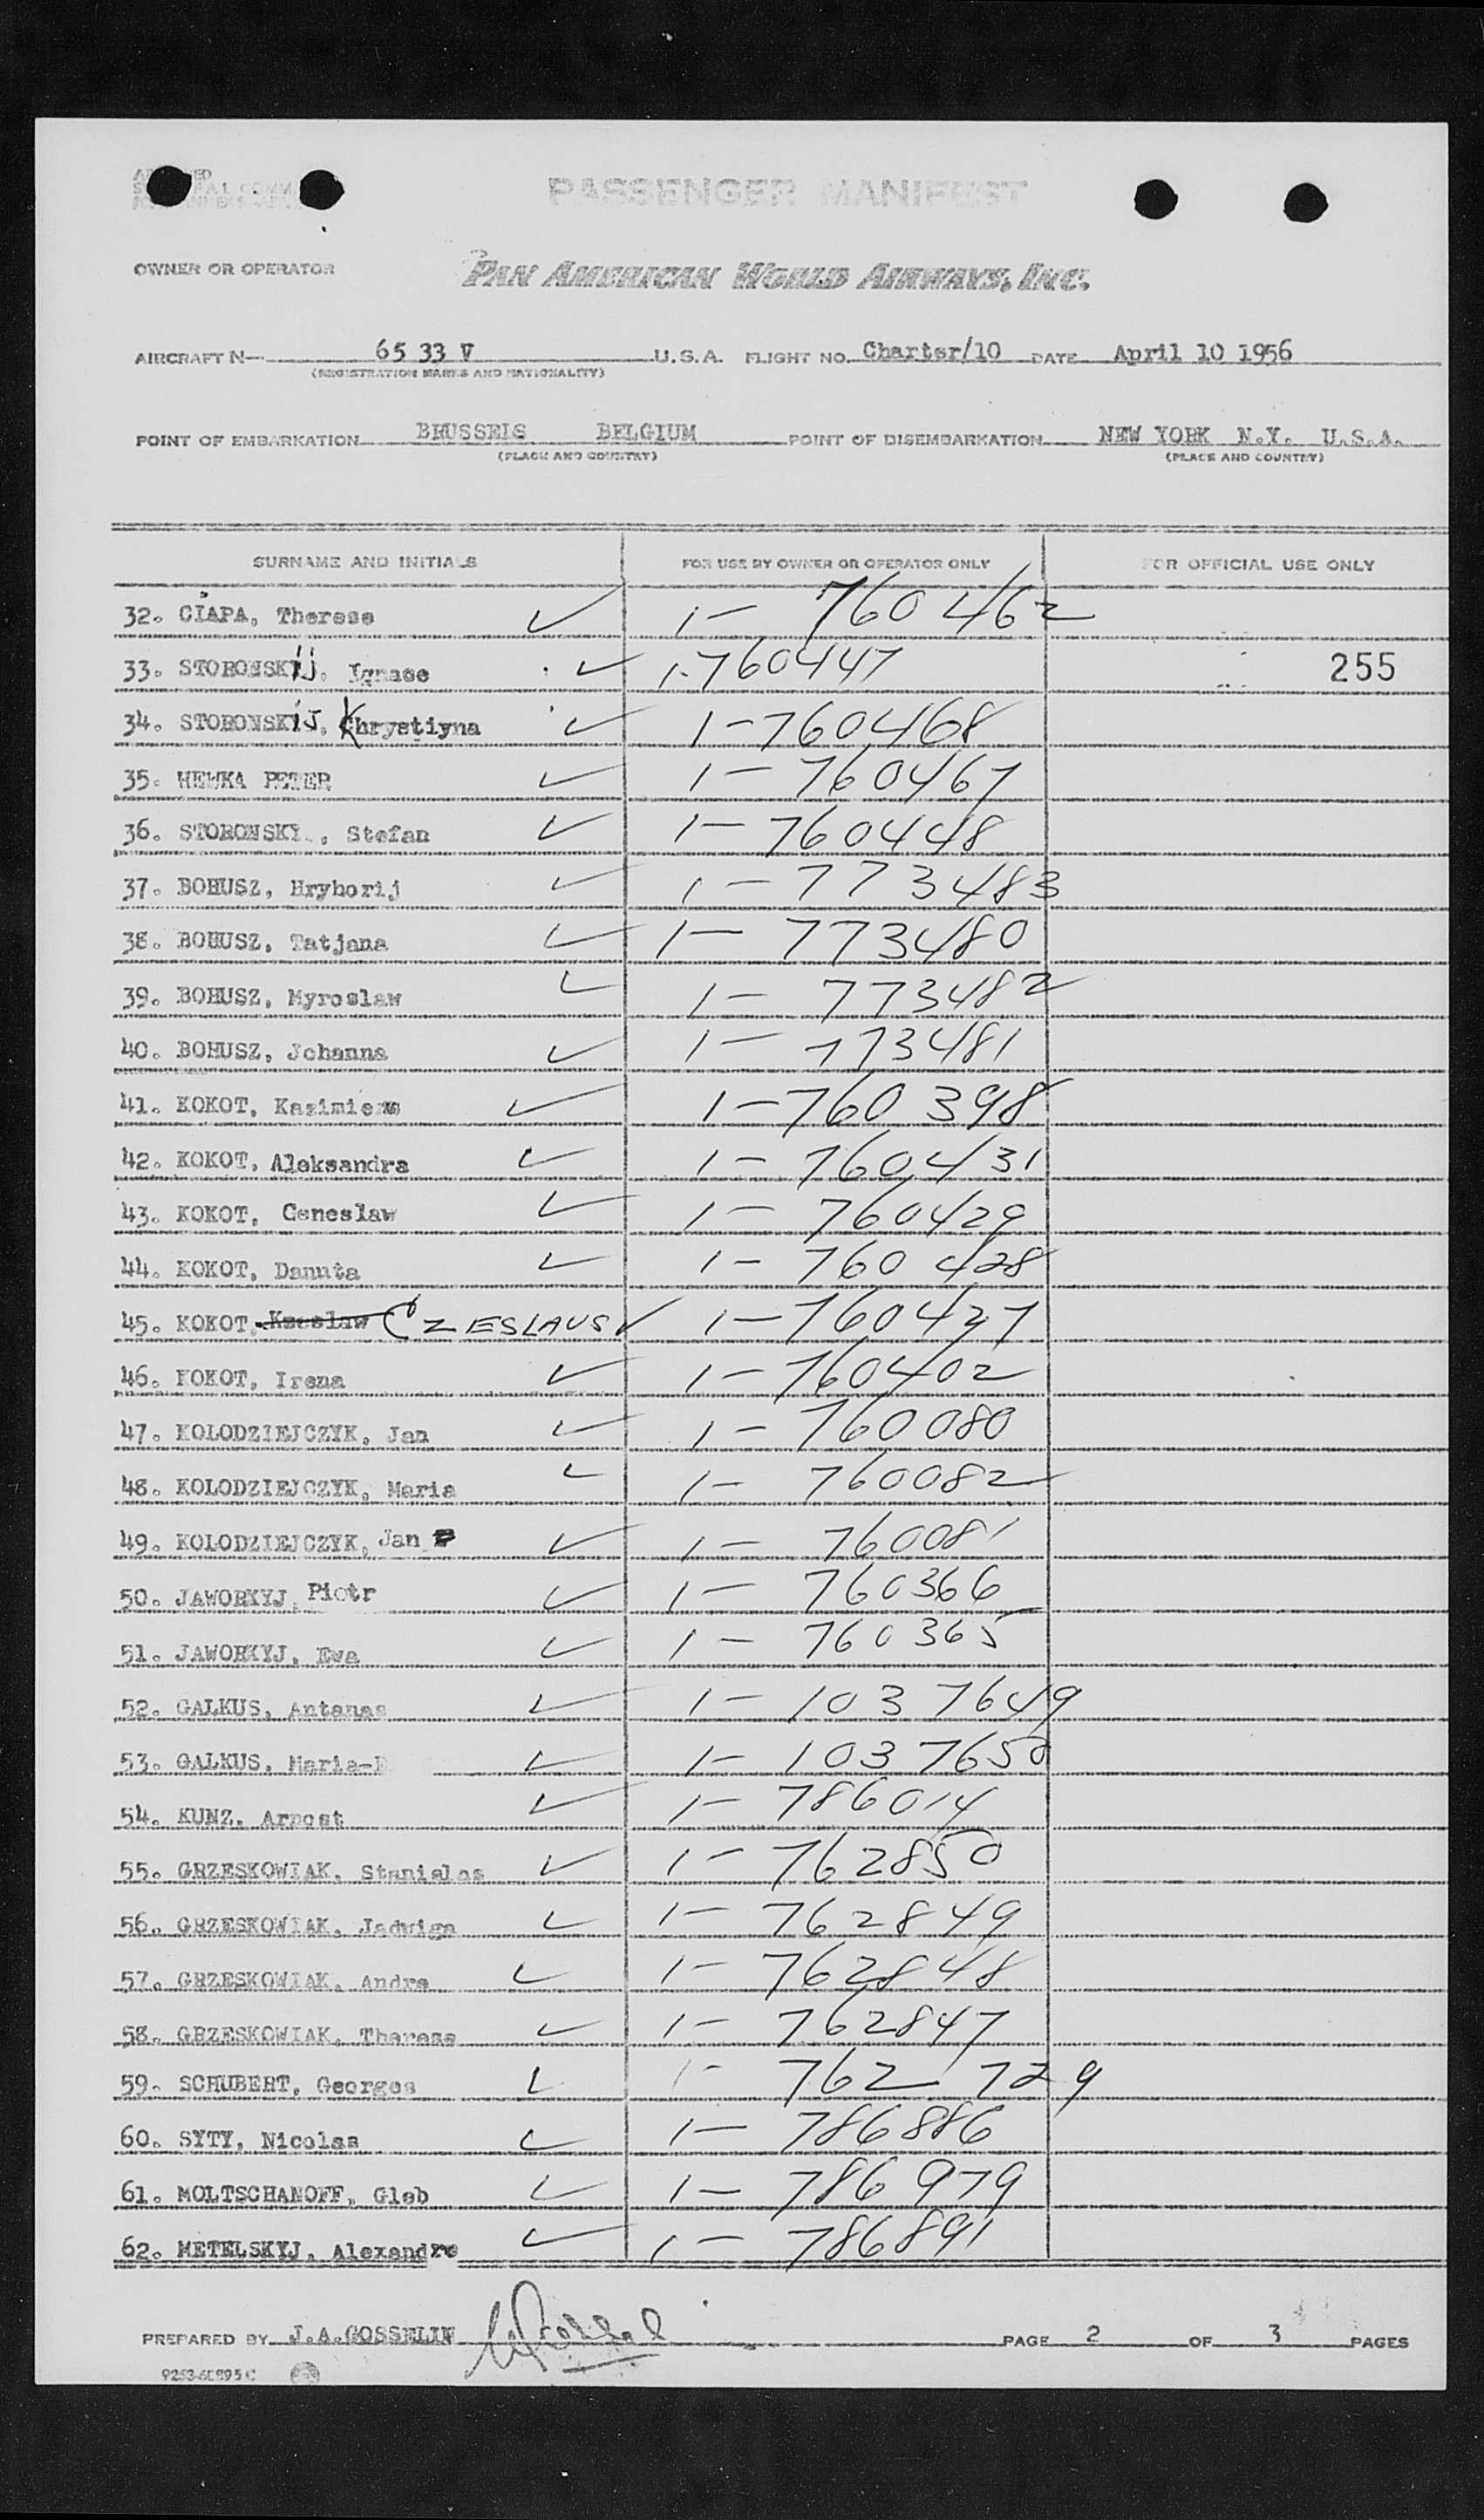 PASSENGER MANIFEST
OWNER OR OPERATOR PAN AMERICAN WORLD AIRWAYS, INC.
AIRCRAFT N— 65 33 V U.S.A. FLIGHT NO. Charter/10 DATE April 10 1956
(REGISTRATION MARKS AND NATIONALITY)
POINT OF EMBARKATION BRUSSELS BELGIUM POINT OF DISEMBARKATION NEW YORK N.Y. U.S.A.
(PLACE AND COUNTRY) (PLACE AND COUNTRY)
SURNAME AND INITIALS FOR USE BY OWNER OR OPERATOR ONLY FOR OFFICIAL USE ONLY
32. CIAPA, Therese ✓ 1- 760 462
33. STORONSKIJ, Ignace ✓ 1-760447 255
34. STORONSKIJ, Khrystiyna ✓ 1-760468
35. HEWKA PETER ✓ 1- 760467
36. STORONSKY, Stefan ✓ 1- 760448
37. BOHUSZ, Hryhorij ✓ 1- 773483
38. BOHUSZ, Tatjana ✓ 1- 773480
39. BOHUSZ, Myroslaw ✓ 1- 773482
40. BOHUSZ, Johanna ✓ 1- 773481
41. KOKOT, Kazimierz ✓ 1-760 398
42. KOKOT, Aleksandra ✓ 1- 760431
43. KOKOT, Ceneslaw ✓ 1- 760429
44. KOKOT, Danuta ✓ 1- 760 428
45. KOKOT, CZESLAUS ✓ 1-760427
46. KOKOT, Irena ✓ 1-760402
47. KOLODZIEJCZYK, Jan ✓ 1- 760080
48. KOLODZIEJCZYK, Maria ✓ 1- 760082
49. KOLODZIEJCZYK, Jan ✓ 1- 760081
50. JAWORKYJ, Piotr ✓ 1- 760366
51. JAWORKYJ, Ewa ✓ 1- 760365
52. GALKUS, Antanas ✓ 1- 1037649
53. GALKUS, Maria- ✓ 1- 1037650
54. KUNZ, Arnost ✓ 1- 786014
55. GRZESKOWIAK, Stanislas ✓ 1- 762850
56. GRZESKOWIAK, Jadwiga ✓ 1- 762849
57. GRZESKOWIAK, Andre ✓ 1- 762848
58. GRZESKOWIAK, Therese ✓ 1- 762847
59. SCHUBERT, Georges ✓ 1- 762 729
60. SYTY, Nicolas ✓ 1- 786886
61. MOLTSCHANOFF, Gleb ✓ 1- 786979
62. METELSKYJ, Alexandre ✓ 1- 786891
PREPARED BY J.A.GOSSELIN PAGE 2 OF 3 PAGES